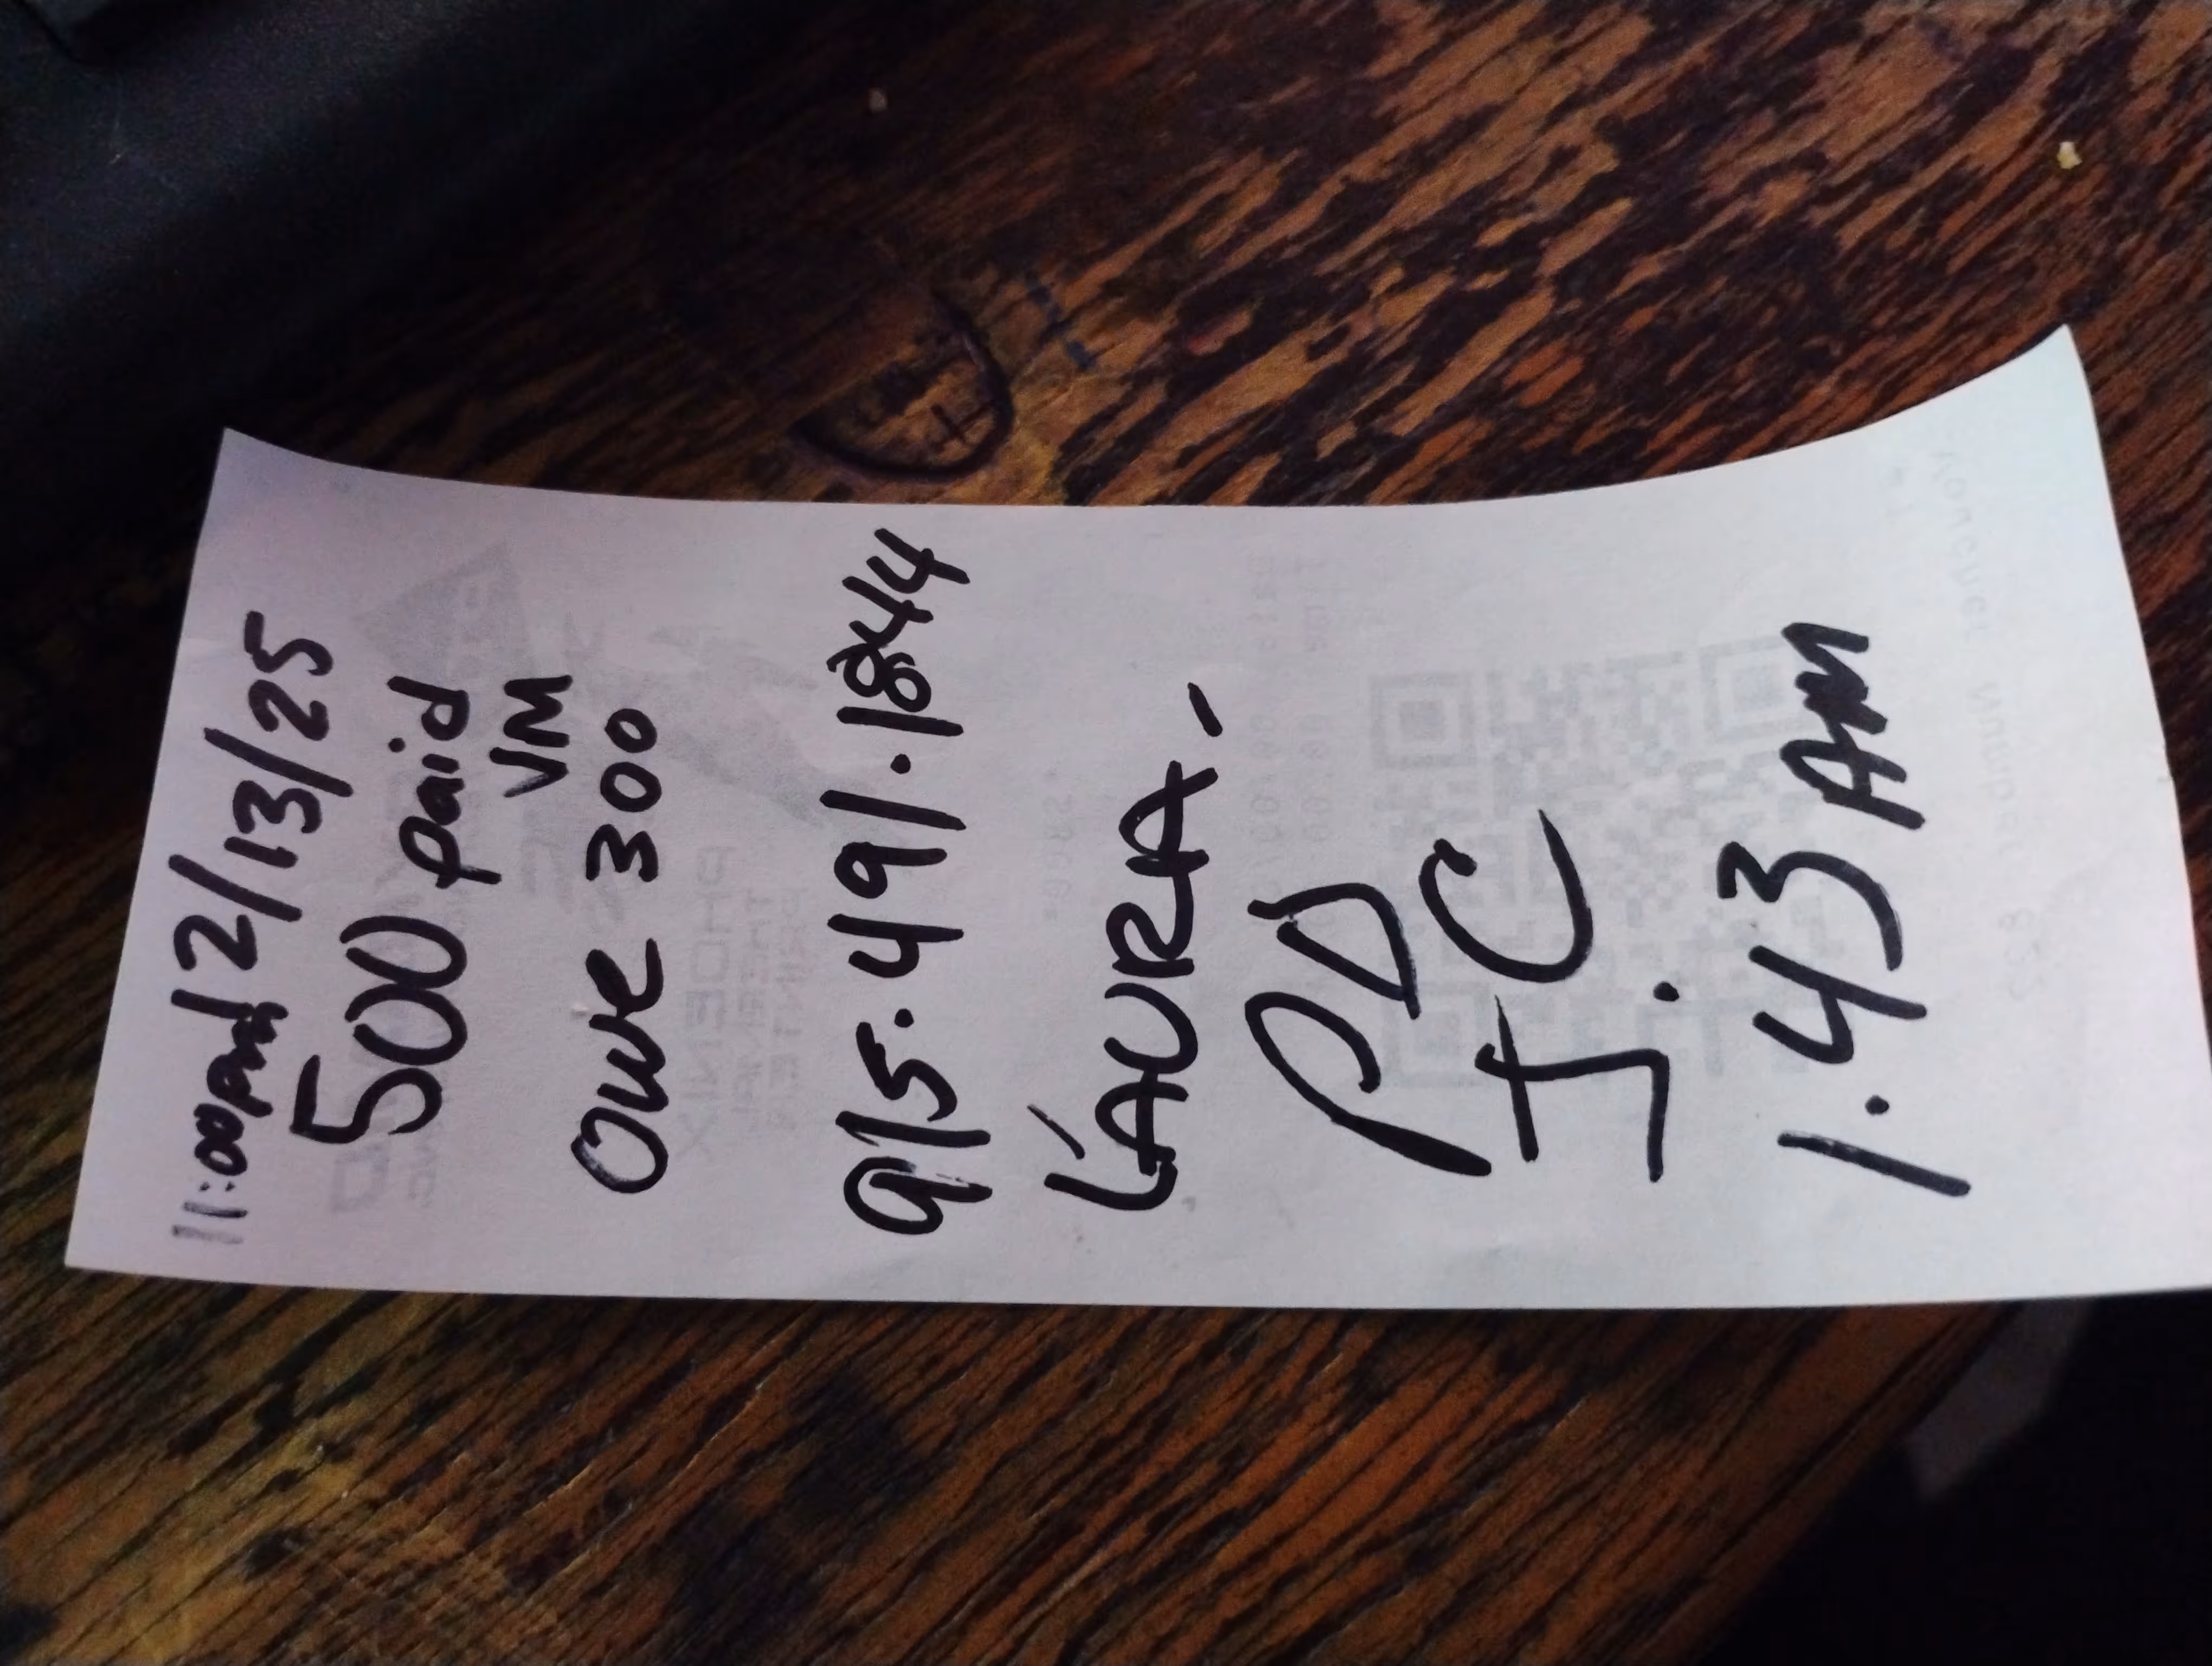 11:00pm 2/13/25
500 paid
VM
owe 300
915.491.1844
LAURA-
PD
J.C
1.43 AM
PHOENIX
THEY